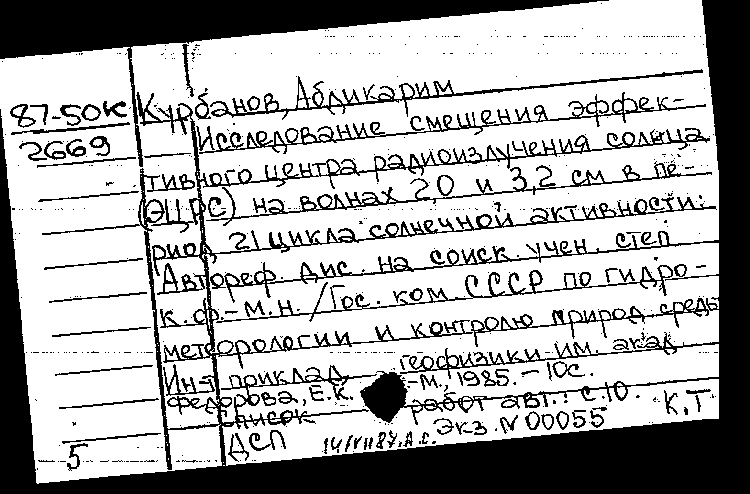 87-50к Курбанов, Абдикарим
2669 Исследование смещения эффек-
тивного центра радиоизлучения солнца
(ЭЦРС) на волнах 2,0 и 3,2 см в пе-
риод 21 цикла солнечной активности:
Автореф. дис. на соиск. учен. степ
к.ф.-м.н. / Гос. ком. СССР по гидро-
метеорологии и контролю природ. среды
Ин-т приклад. геофизики им. акад
Федорова, Е.К. -М., 1985. - 10с.
Список работ авт.: с.10.
ДСП 14/VII87.А.С. Экз. N 00055 К.Т
5